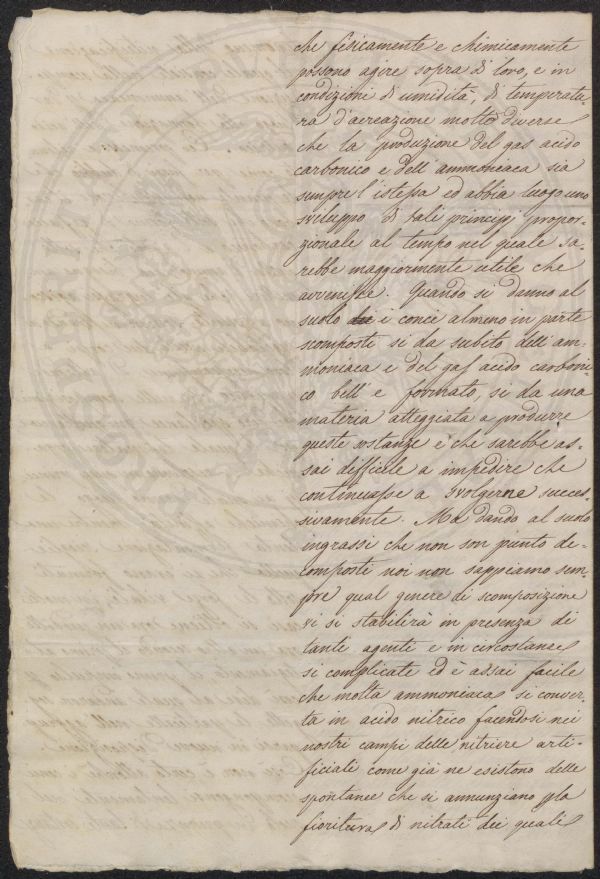 che fisicamente e chimicamente
possono agire sopra di loro, e in
condizioni di umidità, di temperatu-
ra d'aereazione molto diverse
che la produzione del gas acido
carbonico e dell'ammoniaca sia
sempre l'istessa ed abbia luogo uno
sviluppo di tali principj propor-
zionale al tempo nel quale sa-
rebbe maggiormente utile che
avvenisse. Quando si danno al
suolo i conci almeno in parte
scomposti si da subito dell'am-
moniaca e del gas acido carboni-
co bell'e formato, si da una
materia atteggiata a produrre
queste sostanze e che sarebbe as-
sai difficile a impedire che
continuasse a svolgerne succes-
sivamente. Ma dando al suolo
ingrassi che non son punto de-
composti noi non sappiamo sem-
pre qual genere di scomposizione
vi si stabilirà in presenza di
tante agenti e in circostanze
si complicate ed è assai facile
che molta ammoniaca si conver-
ta in acido nitrico facendosi nei
nostri campi delle nitriere arti-
ficiali come già ne esistono delle
spontanee che si annunziano pla
fioritura di nitrati dei quali
PROSPERITAS